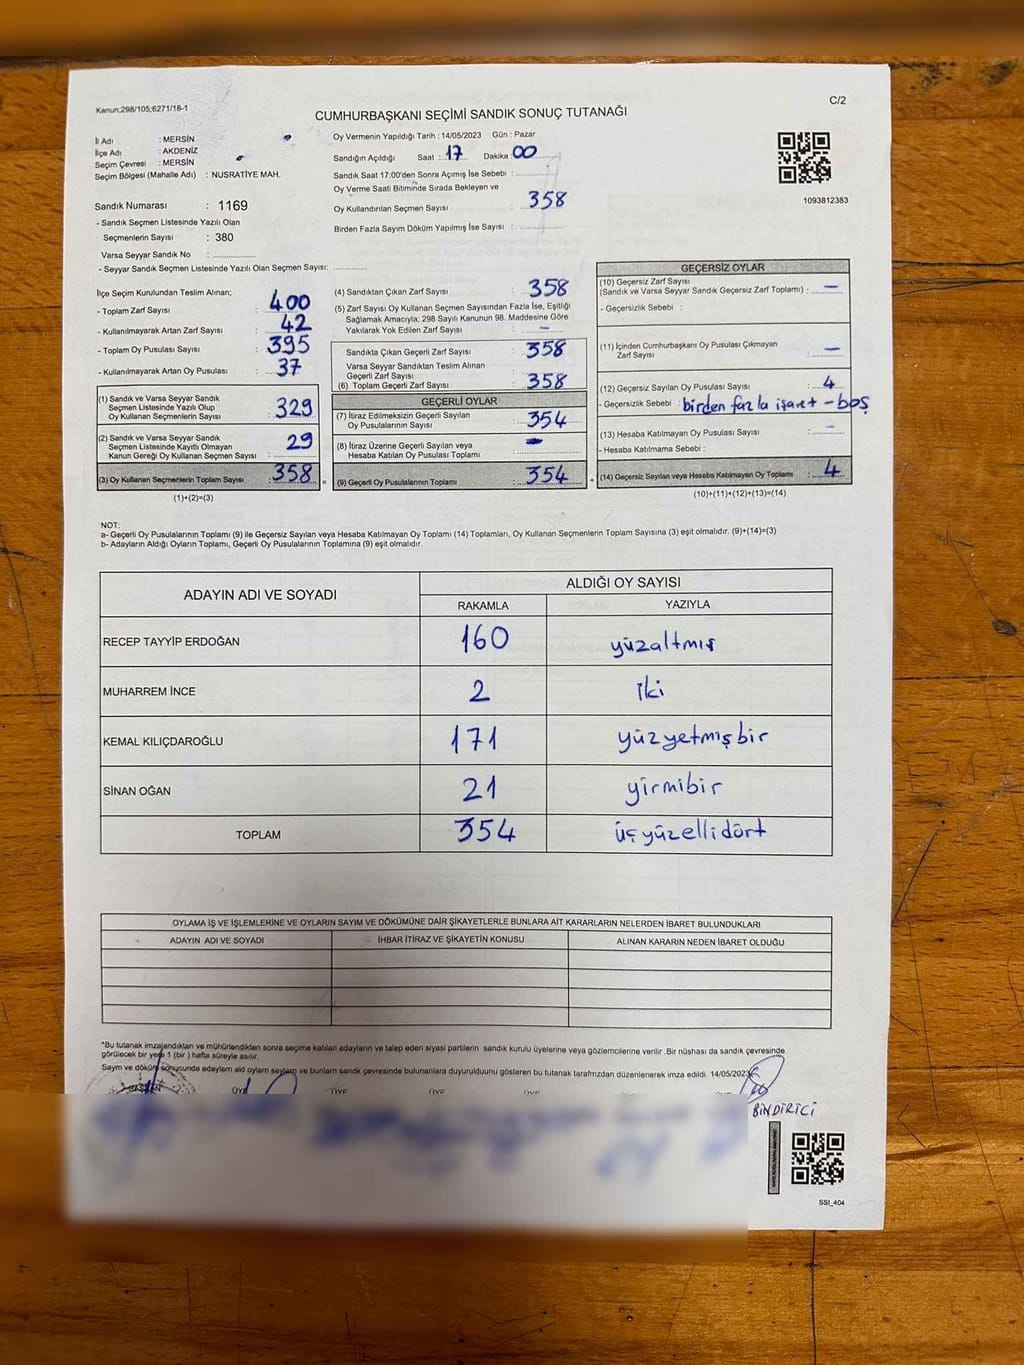 Kanun;298/105;6271/18-1
C/2
CUMHURBAŞKANI SEÇİMİ SANDIK SONUÇ TUTANAĞI
İl Adı : MERSİN
İlçe Adı : AKDENİZ
Seçim Çevresi : MERSİN
Seçim Bölgesi (Mahalle Adı) : NUSRATİYE MAH.
Sandık Numarası : 1169
- Sandık Seçmen Listesinde Yazılı Olan
Seçmenlerin Sayısı : 380
Varsa Seyyar Sandık No :
- Seyyar Sandık Seçmen Listesinde Yazılı Olan Seçmen Sayısı:
Oy Vermenin Yapıldığı Tarih : 14/05/2023 Gün : Pazar
Sandığın Açıldığı Saat : 17 Dakika : 00
Sandık Saat 17:00'den Sonra Açımış İse Sebebi :
Oy Verme Saati Bitiminde Sırada Bekleyen ve
Oy Kullandırılan Seçmen Sayısı : 358
Birden Fazla Sayım Döküm Yapılmış İse Sayısı :
1093812383
İlçe Seçim Kurulundan Teslim Alınan;
- Toplam Zarf Sayısı : 400
- Kullanılmayarak Artan Zarf Sayısı : 42
- Toplam Oy Pusulası Sayısı : 395
- Kullanılmayarak Artan Oy Pusulası : 37
(1) Sandık ve Varsa Seyyar Sandık
Seçmen Listesinde Yazılı Olup
Oy Kullanan Seçmenlerin Sayısı : 329
(2) Sandık ve Varsa Seyyar Sandık
Seçmen Listesinde Kayıtlı Olmayan
Kanun Gereği Oy Kullanan Seçmen Sayısı : 29
(3) Oy Kullanan Seçmenlerin Toplam Sayısı : 358 =
(1)+(2)=(3)
(4) Sandıktan Çıkan Zarf Sayısı : 358
(5) Zarf Sayısı Oy Kullanan Seçmen Sayısından Fazla İse, Eşitliği
Sağlamak Amacıyla; 298 Sayılı Kanunun 98. Maddesine Göre
Yakılarak Yok Edilen Zarf Sayısı : -
Sandıkta Çıkan Geçerli Zarf Sayısı : 358
Varsa Seyyar Sandıktan Teslim Alınan
Geçerli Zarf Sayısı :
(6) Toplam Geçerli Zarf Sayısı : 358
GEÇERLİ OYLAR
(7) İtiraz Edilmeksizin Geçerli Sayılan
Oy Pusulalarının Sayısı : 354
(8) İtiraz Üzerine Geçerli Sayılan veya
Hesaba Katılan Oy Pusulası Toplamı : -
(9) Geçerli Oy Pusulalarının Toplamı : 354 +
GEÇERSİZ OYLAR
(10) Geçersiz Zarf Sayısı
(Sandık ve Varsa Seyyar Sandık Geçersiz Zarf Toplamı) : -
- Geçersizlik Sebebi :
(11) İçinden Cumhurbaşkanı Oy Pusulası Çıkmayan
Zarf Sayısı : -
(12) Geçersiz Sayılan Oy Pusulası Sayısı : 4
- Geçersizlik Sebebi : birden fazla işaret - boş
(13) Hesaba Katılmayan Oy Pusulası Sayısı : -
- Hesaba Katılmama Sebebi :
(14) Geçersiz Sayılan veya Hesaba Katılmayan Oy Toplamı : 4
(10)+(11)+(12)+(13)=(14)
NOT:
a- Geçerli Oy Pusulalarının Toplamı (9) ile Geçersiz Sayılan veya Hesaba Katılmayan Oy Toplamı (14) Toplamları, Oy Kullanan Seçmenlerin Toplam Sayısına (3) eşit olmalıdır. (9)+(14)=(3)
b- Adayların Aldığı Oyların Toplamı, Geçerli Oy Pusulalarının Toplamına (9) eşit olmalıdır.
ADAYIN ADI VE SOYADI
ALDIĞI OY SAYISI
RAKAMLA YAZIYLA
RECEP TAYYİP ERDOĞAN 160 yüzaltmış
MUHARREM İNCE 2 iki
KEMAL KILIÇDAROĞLU 171 yüzyetmişbir
SİNAN OĞAN 21 yirmibir
TOPLAM 354 üçyüzellidört
OYLAMA İŞ VE İŞLEMLERİNE VE OYLARIN SAYIM VE DÖKÜMÜNE DAİR ŞİKAYETLERLE BUNLARA AİT KARARLARIN NELERDEN İBARET BULUNDUKLARI
ADAYIN ADI VE SOYADI İHBAR İTİRAZ VE ŞİKAYETİN KONUSU ALINAN KARARIN NEDEN İBARET OLDUĞU
*Bu tutanak imzalandıktan ve mühürlendikten sonra seçime katılan adayların ve talep eden siyasi partilerin sandık kurulu üyelerine veya gözlemcilerine verilir .Bir nüshası da sandık çevresinde
görülecek bir yere 1 (bir ) hafta süreyle asılır.
Sayım ve döküm sonucunda adayların aldığı oyların sayısını ve bunların sandık çevresinde bulunanlara duyurulduğunu gösteren bu tutanak tarafımızdan düzenlenerek imza edildi. 14/05/2023
BAŞKAN ÜYE ÜYE ÜYE ÜYE
BİNDİRİCİ
SSI_404